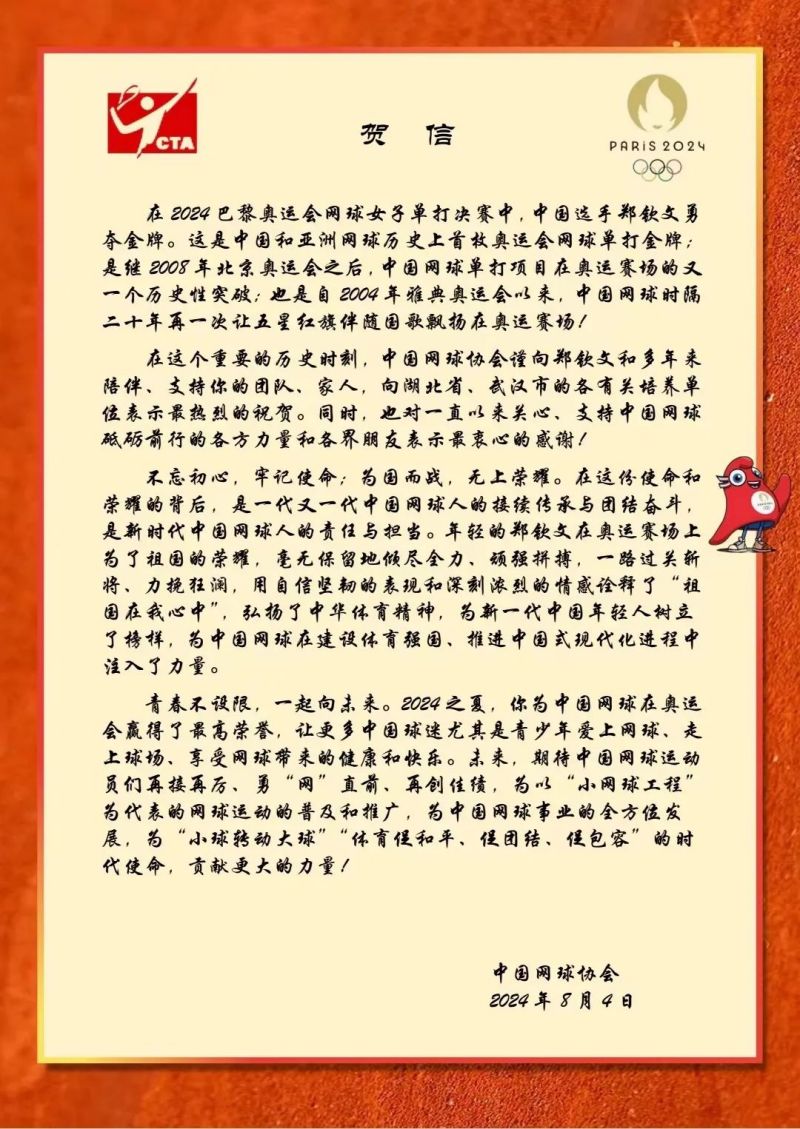 CTA
PARIS 2024
贺 信
在2024巴黎奥运会网球女子单打决赛中，中国选手郑钦文勇
夺金牌。这是中国和亚洲网球历史上首枚奥运会网球单打金牌；
是继2008年北京奥运会之后，中国网球单打项目在奥运赛场的又
一个历史性突破；也是自2004年雅典奥运会以来，中国网球时隔
二十年再一次让五星红旗伴随国歌飘扬在奥运赛场！
在这个重要的历史时刻，中国网球协会谨向郑钦文和多年来
陪伴、支持你的团队、家人，向湖北省、武汉市的各有关培养单
位表示最热烈的祝贺。同时，也对一直以来关心、支持中国网球
砥砺前行的各方力量和各界朋友表示最衷心的感谢！
不忘初心，牢记使命；为国而战，无上荣耀。在这份使命和
荣耀的背后，是一代又一代中国网球人的接续传承与团结奋斗，
是新时代中国网球人的责任与担当。年轻的郑钦文在奥运赛场上
为了祖国的荣耀，毫无保留地倾尽全力、顽强拼搏，一路过关斩
将、力挽狂澜，用自信坚韧的表现和深刻浓烈的情感诠释了“祖
国在我心中”，弘扬了中华体育精神，为新一代中国年轻人树立
了榜样，为中国网球在建设体育强国、推进中国式现代化进程中
注入了力量。
青春不设限，一起向未来。2024之夏，你为中国网球在奥运
会赢得了最高荣誉，让更多中国球迷尤其是青少年爱上网球、走
上球场、享受网球带来的健康和快乐。未来，期待中国网球运动
员们再接再厉、勇“网”直前、再创佳绩，为以“小网球工程”
为代表的网球运动的普及和推广，为中国网球事业的全方位发
展，为“小球转动大球”“体育促和平、促团结、促包容”的时
代使命，贡献更大的力量！
中国网球协会
2024年8月4日